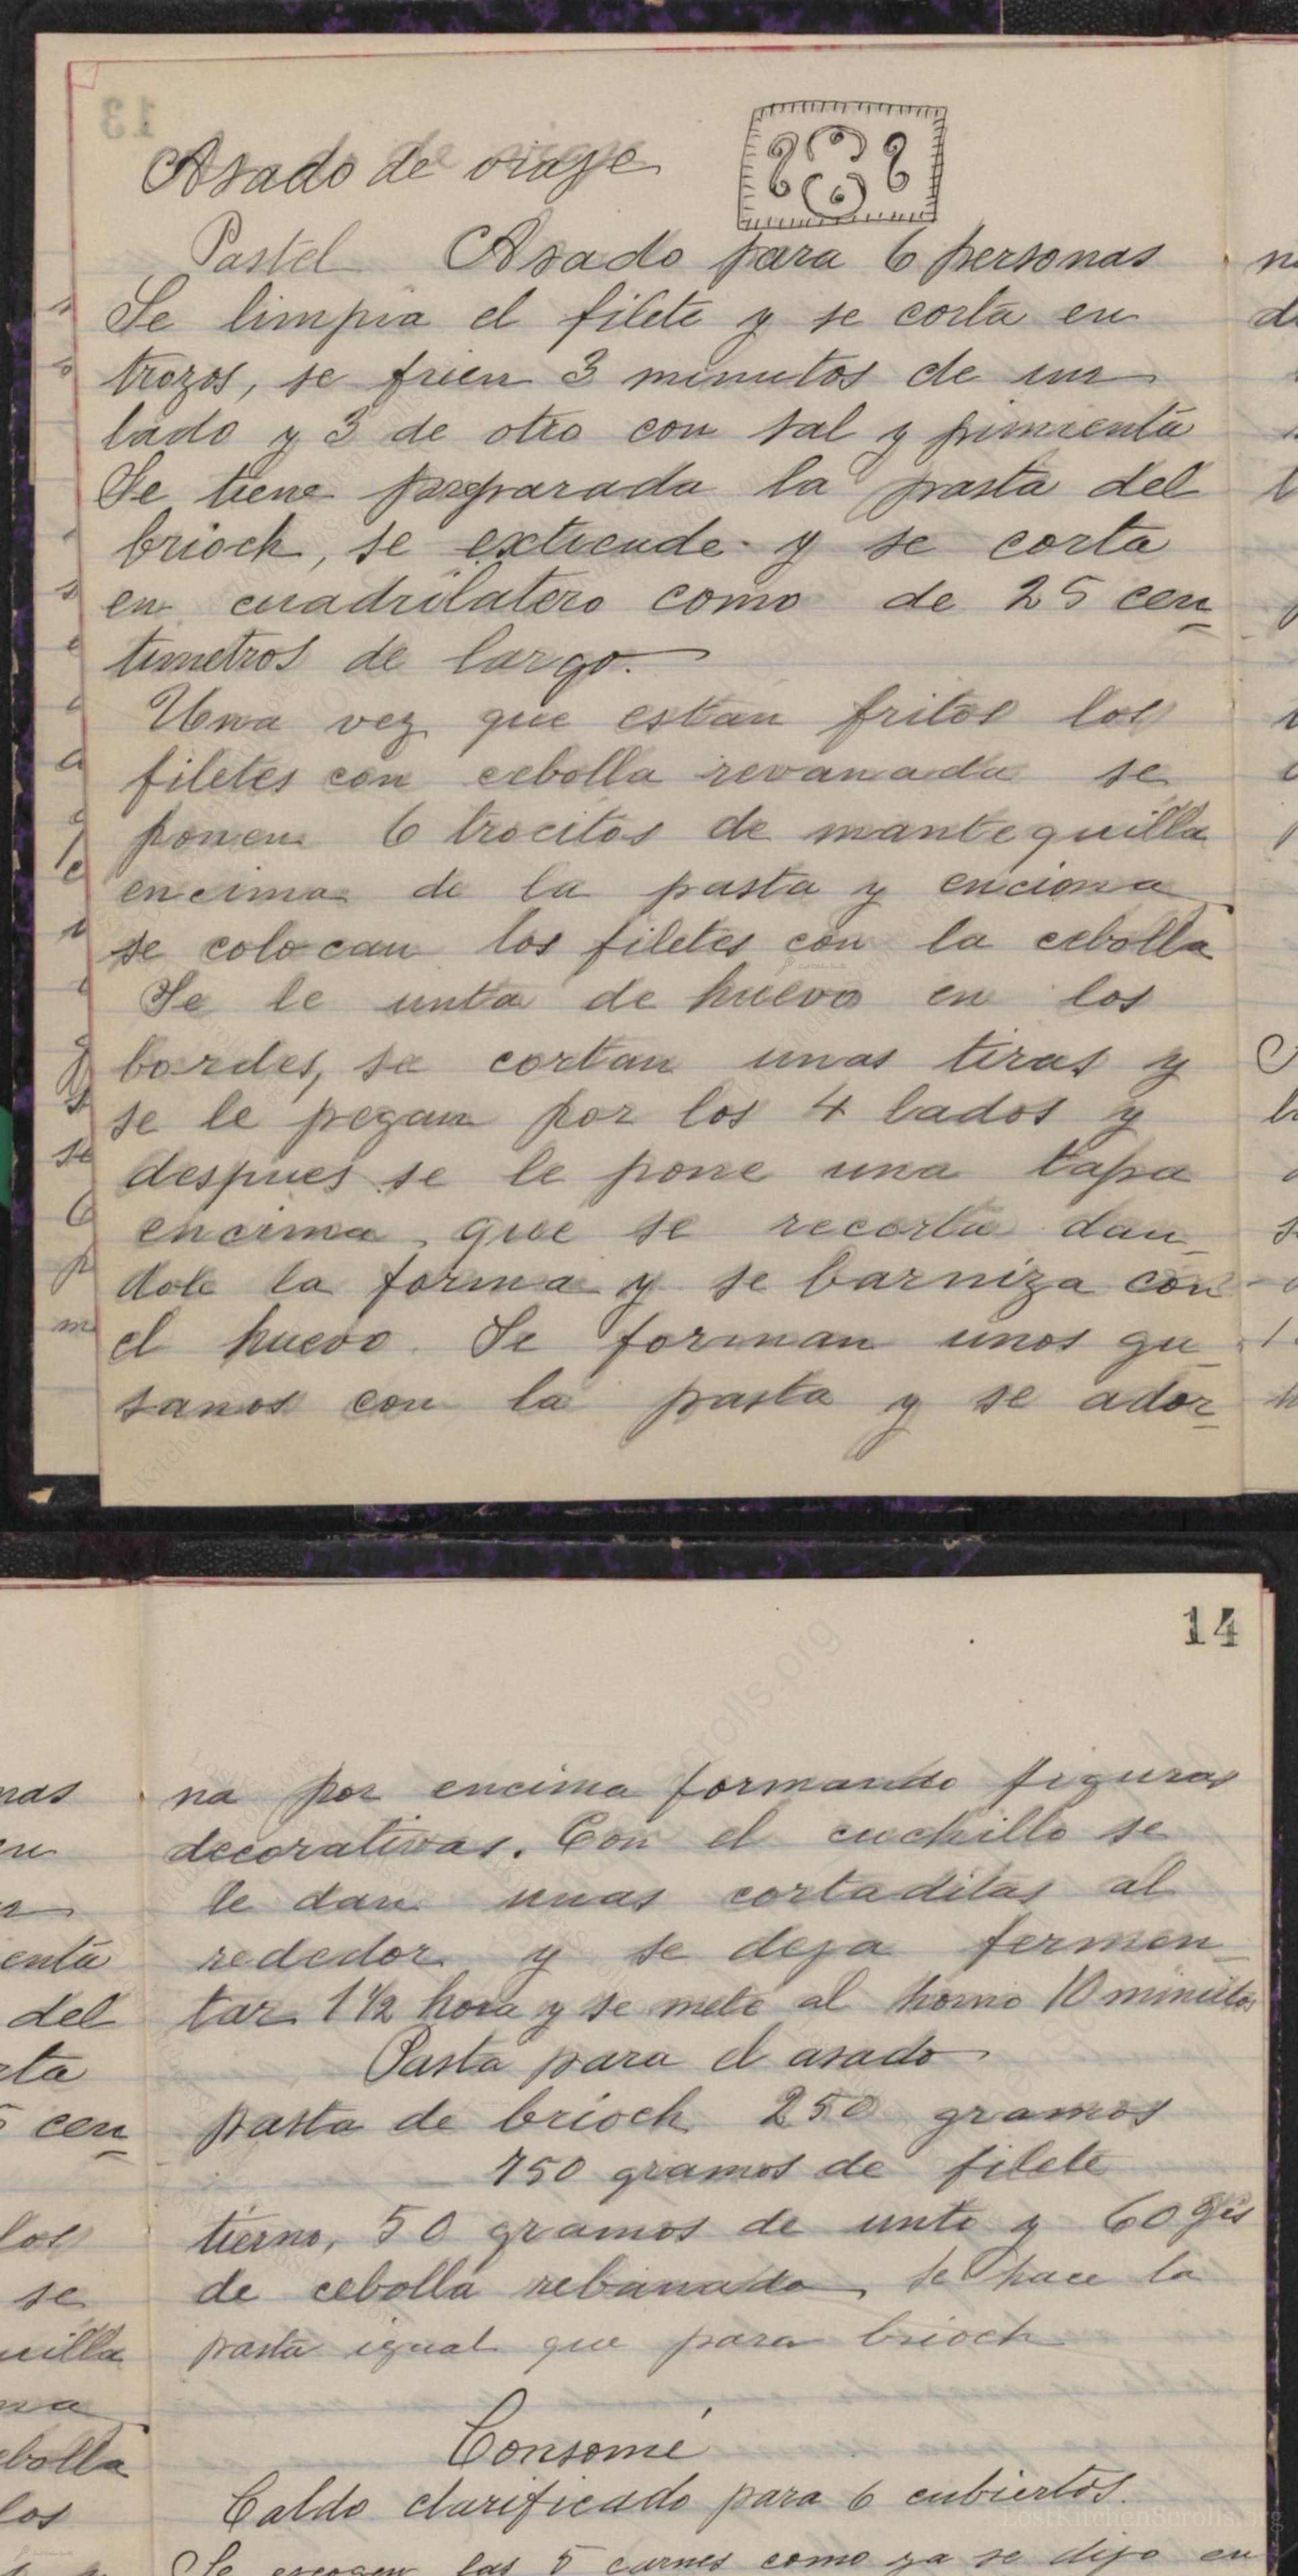 13
Asado de viaje
Pastel Asado para 6 personas
Se limpia el filete y se corta en
trozos, se frien 3 minutos de un
lado y 3 de otro con sal y pimienta
Se tiene preparada la pasta del
brioch, se extiende y se corta
en cuadrilatero como de 25 cen
timetros de largo.
Una vez que estan fritos los
filetes con cebolla revanada se
ponen 6 trocitos de mantequilla
encima de la pasta y encima
se colocan los filetes con la cebolla
Se le unta de huevo en los
bordes, se cortan unas tiras y
se le pegan por los 4 lados y
despues se le pone una tapa
encima, que se recorta dan
dole la forma y se barniza con
el huevo. Se forman unos gu
sanos con la pasta y se ador
14
na por encima formando figuras
decorativas. Con el cuchillo se
le dan unas cortaditas al
rededor y se deja fermen
tar 1 1/2 hora y se mete al horno 10 minutos
Pasta para el asado
pasta de brioch 250 gramos
750 gramos de filete
tierno, 50 gramos de unto y 60 grs
de cebolla rebanada, se hace la
pasta igual que para brioch
Consomé
Caldo clarificado para 6 cubiertos.
LostKitchenScrolls.org
Se escogen las 5 carnes como ya se dijo en